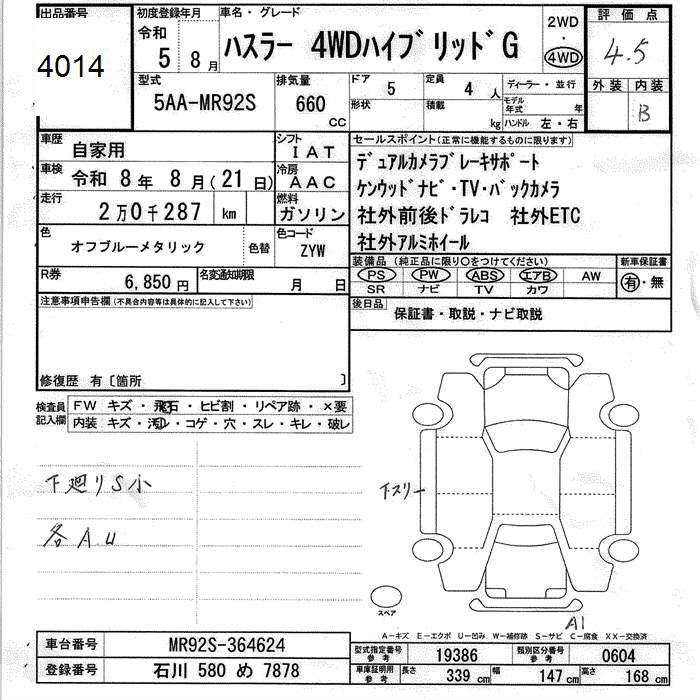 出品番号
4014
初度登録年月
令和 5年 8月
車名・グレード
ハスラー 4WDハイブリッドG
2WD
・
4WD
評価点
4.5
外装 内装
B
型式
5AA-MR92S
排気量
660 CC
ドア 5
形状
定員 4 人
積載 kg
ディーラー・並行
モデル年式 年
ハンドル 左・右
車歴
自家用
シフト
IAT
車検
令和 8年 8月(21日)
冷房
AAC
走行
2万0千287 km
燃料
ガソリン
色
オフブルーメタリック
色替
色コード
ZYW
R券
6,850円
名変通知期限
月 日
セールスポイント(正常に機能するものに限ります)
デュアルカメラブレーキサポート
ケンウッドナビ・TV・バックカメラ
社外前後ドラレコ 社外ETC
社外アルミホイール
装備品(純正品に限り○をつけてください)
PS PW ABS エアB AW
SR ナビ TV カワ
新車保証書
有・無
後日品
保証書・取説・ナビ取説
注意事項申告欄(不具合内容等は具体的に記入して下さい)
修復歴 有〔箇所 〕
検査員記入欄
FW キズ・飛石・ヒビ割・リペア跡・×要
内装 キズ・汚レ・コゲ・穴・スレ・キレ・破レ
下廻りS小
各AU
下スリー
スペア
A1
A-キズ E-エクボ U-凹み W-補修跡 S-サビ C-腐食 XX-交換済
車台番号
MR92S-364624
登録番号
石川 580 め 7878
型式指定番号
参考
19386
類別区分番号
参考
0604
車庫証明用
参考
長さ 339 cm
幅 147 cm
高さ 168 cm